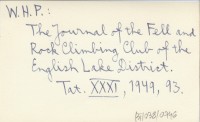 W.H.P.:
The Journal of the Fell and
Rock Climbing Club of the
English Lake District.
Tat. XXXI, 1949, 93.